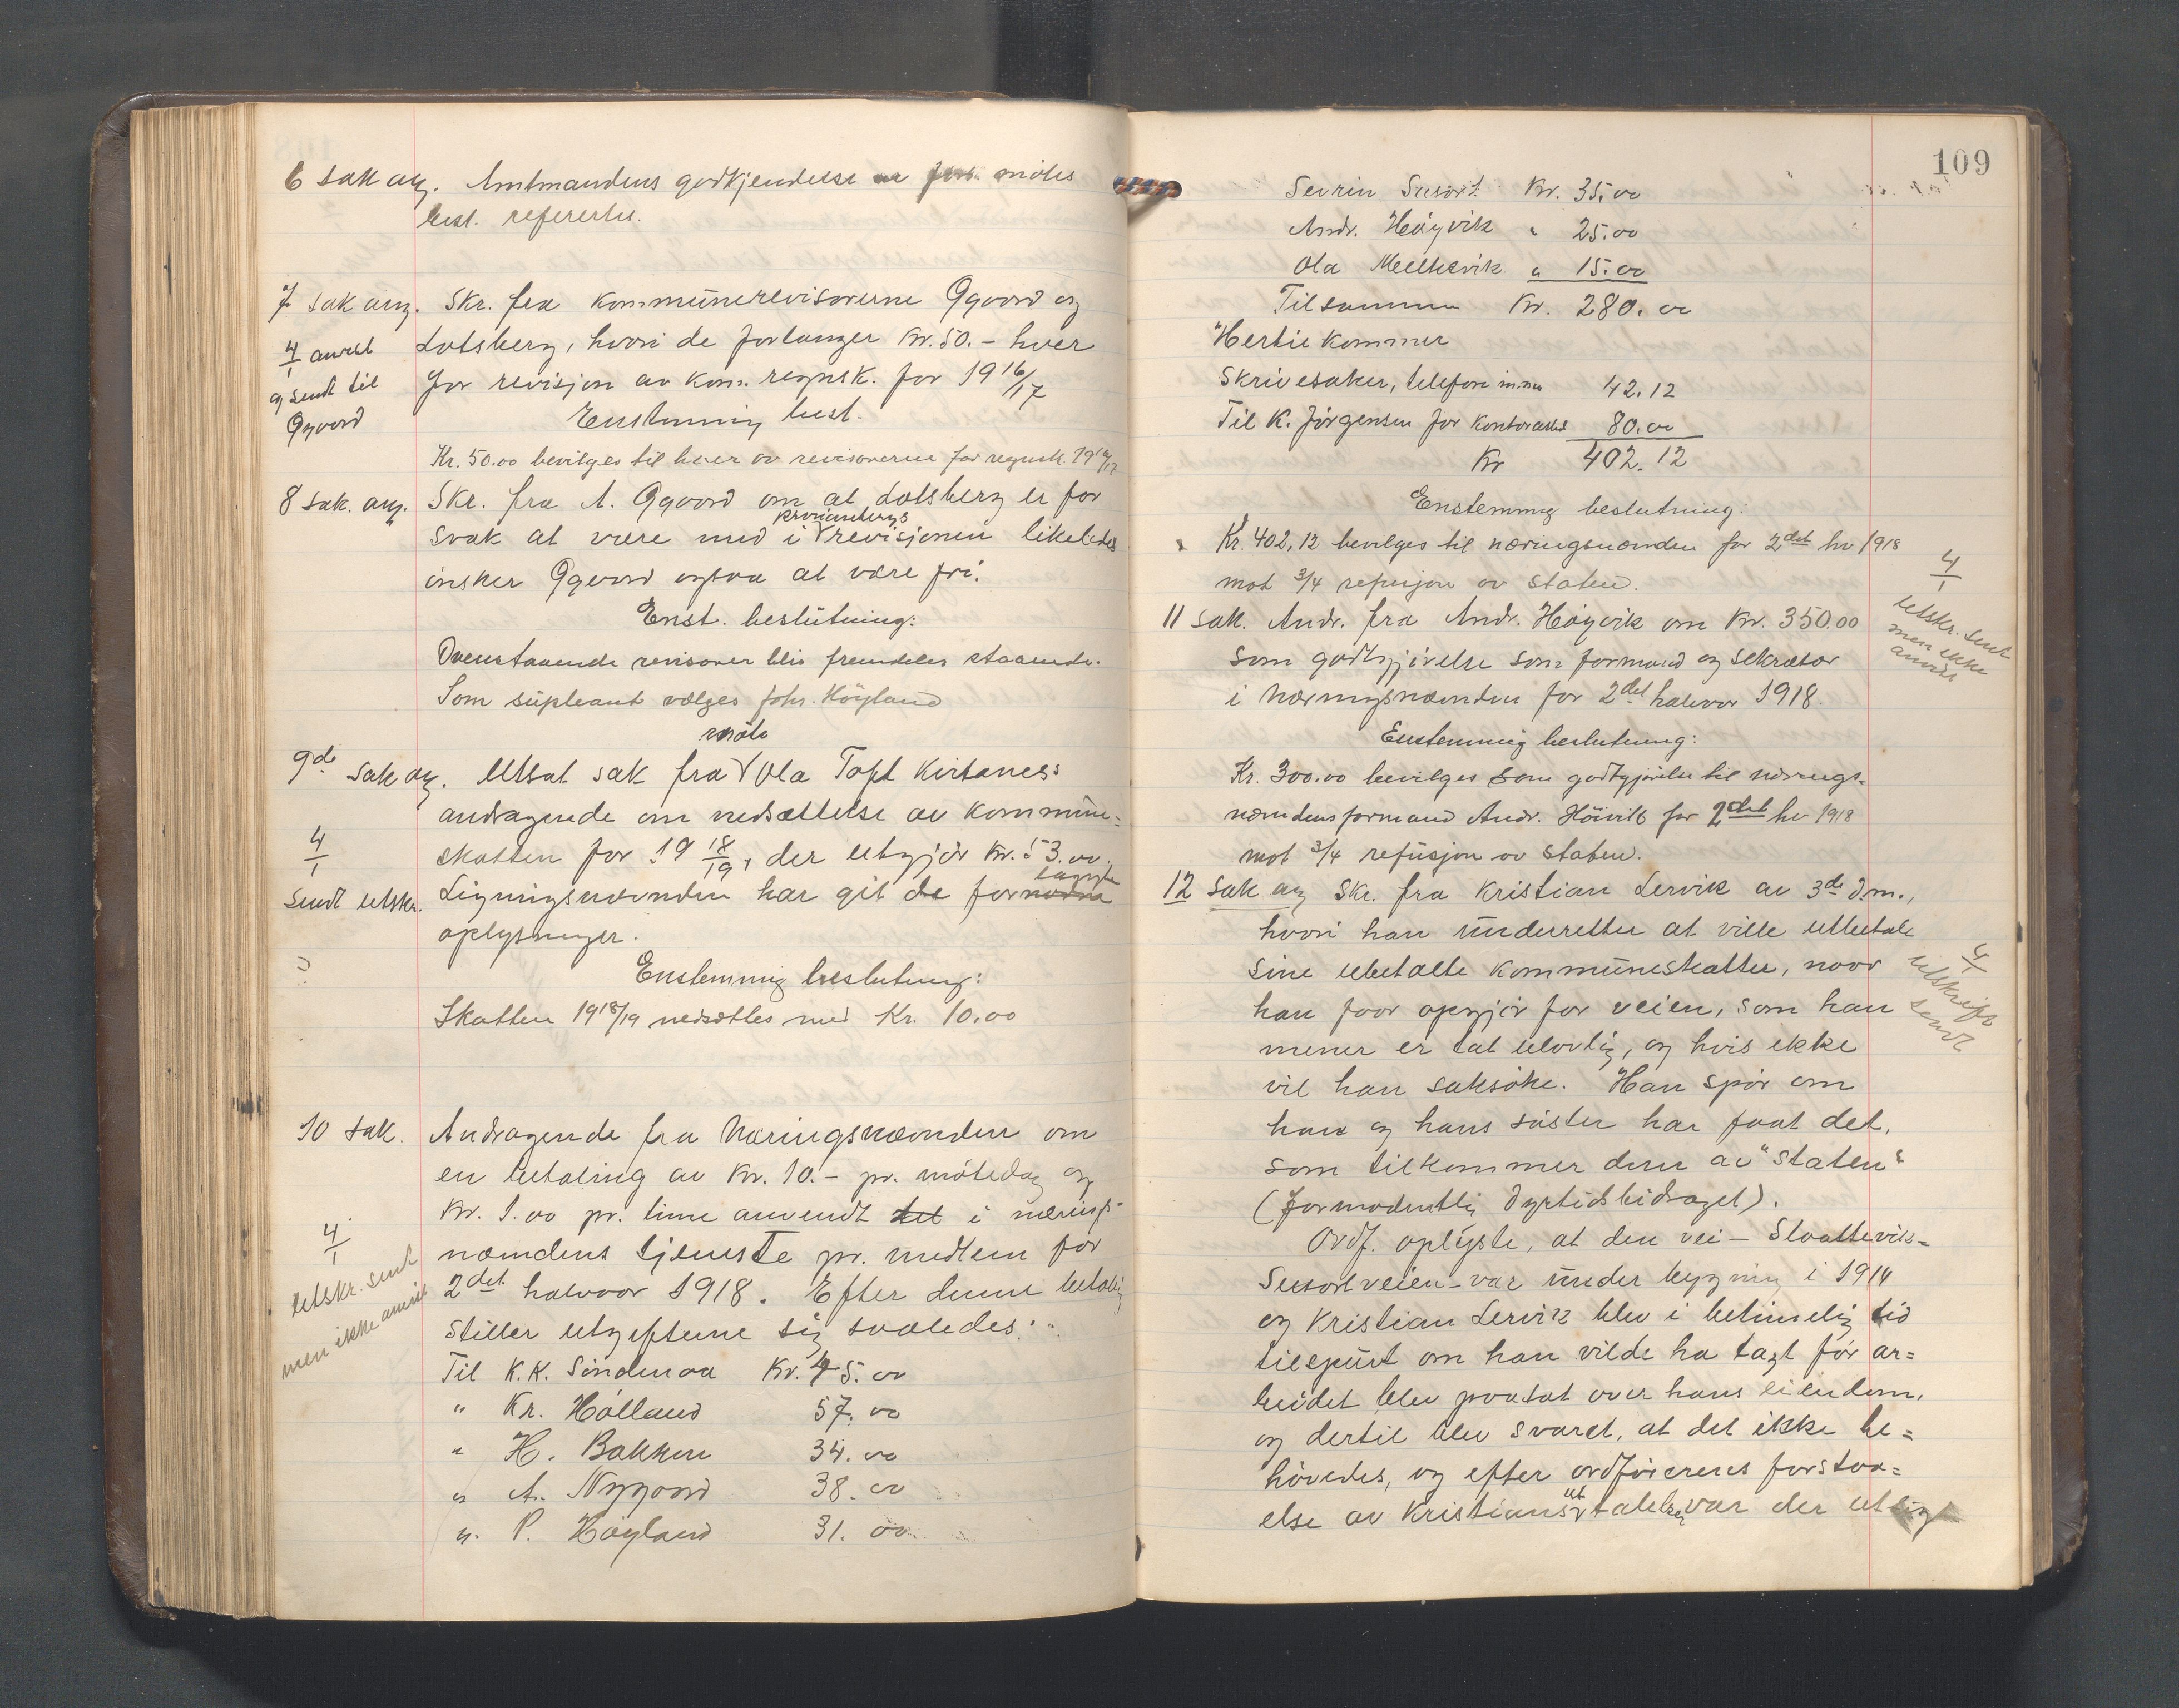 6 sak ang. Amtmandens godkjendelse av fors. mötes
best. refereres.
7 sak ang. Skr. fra kommunerevisorerne Qgvord og
4/1 anvist
og sendt til
Lotsberg, hvori de forlanger Kr. 50.- hver
for revisjon av kom. regnsk. for 1916/17
Enstemmig best.
Kr. 50.00 bevilges til hver av revisorerne for regnsk. 1916/17
8 sak. ang. Skr. fra A. om at Lotsberg er for
svak at være med i provianterings revisjonen likeledes
önsker ogsaa at være fri.
Enst. beslutning:
Ovenstaaende revisorer blir fremdeles staaende.
Som supleant vælges Johs. Höyland
9de sak ang. Utsat sak fra möte Ola Toft Kirtaness
andragende om nedsættelse av kommune=
skatten for 1918/19, der utgjör Kr. 53.00.
4/1
sendt utskr.
Ligningsnævnden har git de forlangte
oplysninger.
Enstemmig beslutning:
Skatten 1918/19 nedsættes med Kr. 10.00
10 sak. Andragende fra Næringsnævnden om
en betaling av Kr. 10.- pr. mötedag og
Kr. 1.00 pr. time anvendt tet i nærings-
4/1
utskr. sendt
men ikke anvist
næmdens tjeneste pr. medlem for
2det halvaar 1918. Efter denne betaling
stiller utgifterne sig saaledes:
Til K.K. Söndenaa Kr. 45.00
" Kr. Hölland 57.00
" H. Bakken 34.00
" A. Nygaard 38.00
" P. Höyland 31.00
109
Sevrin Susort Kr. 35.00
Andr. Höyvik " 25.00
Ola Mellkevik " 15.00
Tilsammen Kr. 280.00
Hertil kommer
Skrivesaker, telefon m.m. 42.12
Til K. Jörgensen for kontorass 80.00
Kr 402.12
Enstemmig beslutning:
Kr. 402,12 bevilges til næringsnævnden for 2det hv 1918
mot 3/4 refusjon av staten.
4/1
utskr. sendt
men ikke
anvist
11 sak. Andr. fra Andr. Höyvik om Kr. 350.00
som godtgjörelse som formand og sekretær
i Næringsnævnden for 2det halvaar 1918.
Enstemmig beslutning:
Kr. 300.00 bevilges som godtgjörelse til nærings-
næmdens formand Andr. Höivik for 2det hv 1918
mot 3/4 refusjon av staten.
12 sak ang Skr. fra Kristian Lervik av 3de d.m.,
hvori han underretter at ville utbetale
sine ubetalte kommuneskatter, naar
4/1
utskrift
sendt
han faar opgjör for veien, som han
mener er tat ulovlig, og hvis ikke
vil han saksöke. Han spör om
han og hans söster har faat det,
som tilkommer dem av "staten"
(formodentlig dyrtidsbidraget).
Ordf. oplyste, at den vei - Slaattevik=
Susortveien - var under bygning i 1914
og Kristian Lervik blev i betimelig tid
tilspurt om han vilde ha tagt för ar=
beidet blev paatat over hans eiendom,
og dertil blev svaret, at det ikke be=
hövedes, og efter ordförerens forstaa=
else av Kristians uttalelser, var der